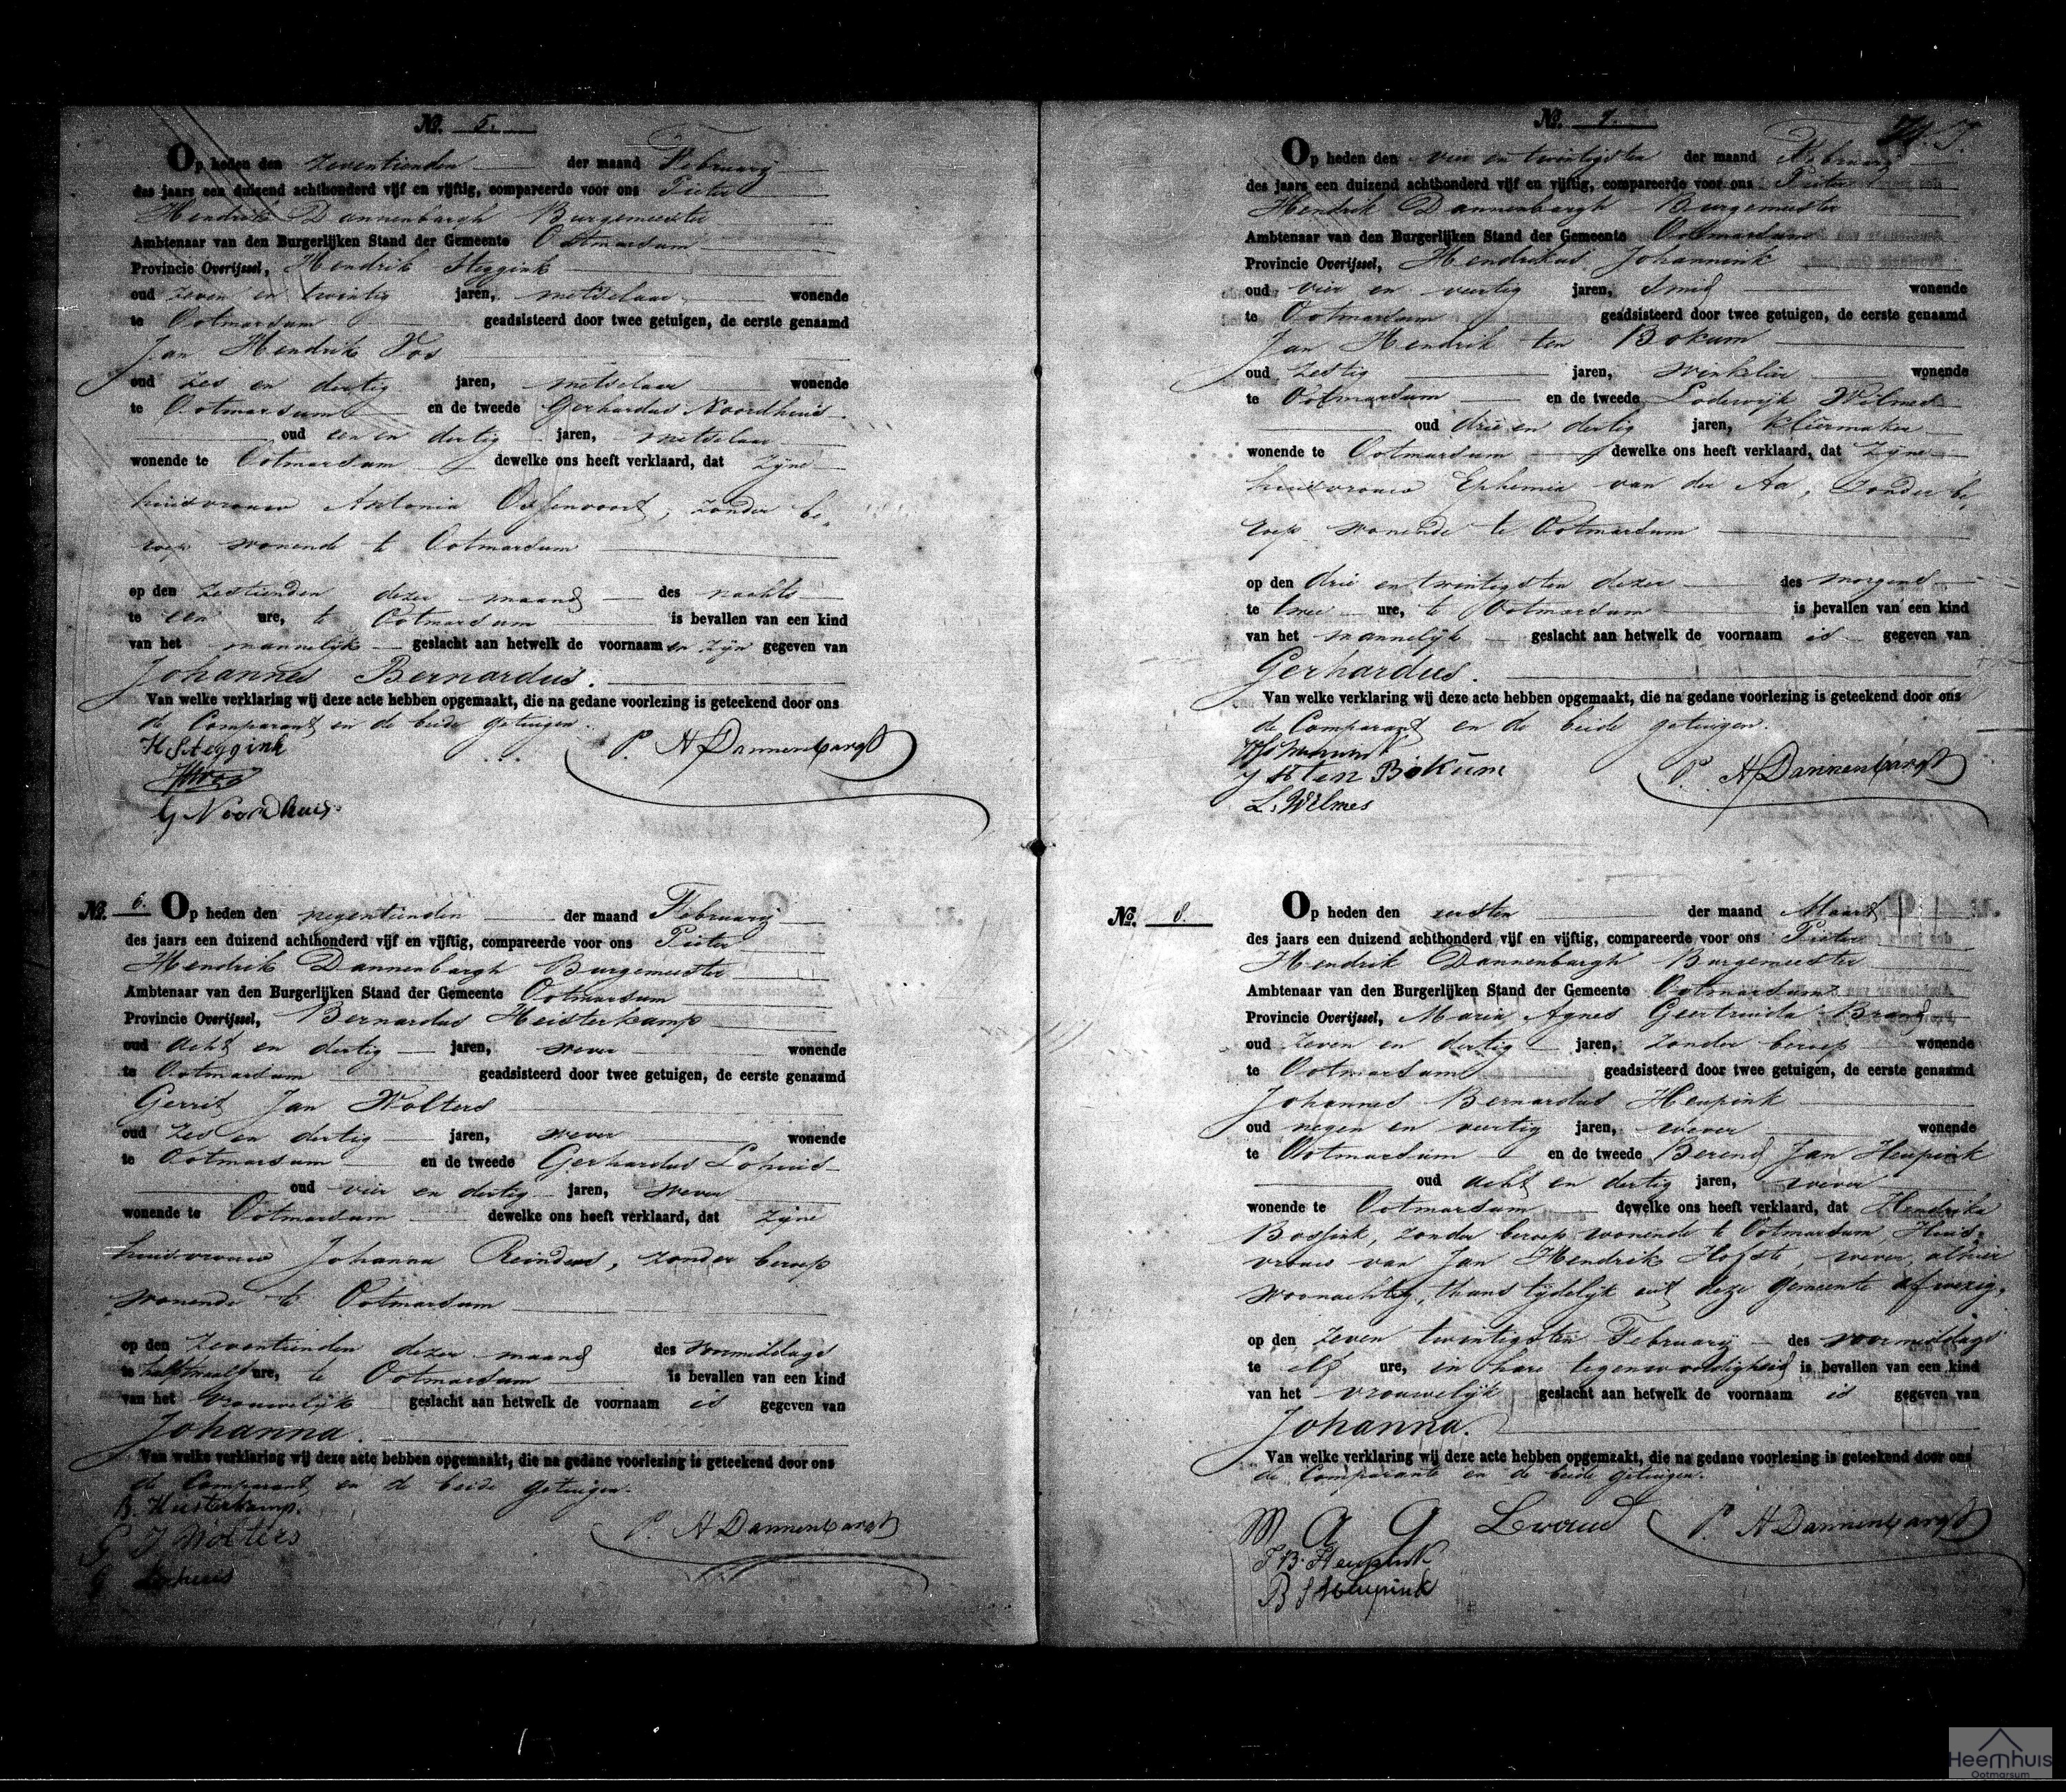 No. 5.
Op heden den zeventienden der maand February
des jaars een duizend achthonderd vijf en vijftig, compareerde voor ons Pieter
Hendrik Dannenbargh Burgemeester
Ambtenaar van den Burgerlijken Stand der Gemeente Ootmarsum
Provincie Overijssel, Hendrik Steggink
oud zeven en twintig jaren, metselaar wonende
te Ootmarsum geadsisteerd door twee getuigen, de eerste genaamd
Jan Hendrik Vos
oud zes en dertig jaren, metselaar wonende
te Ootmarsum en de tweede Gerhardus Noordhuis
oud een en dertig jaren, metselaar
wonende te Ootmarsum dewelke ons heeft verklaard, dat zijne
huisvrouw Antonia zonder be„
roep wonende te Ootmarsum
op den zestienden dezer maand des nachts
te een ure, te Ootmarsum is bevallen van een kind
van het mannelijk geslacht aan hetwelk de voornaamen zijn gegeven van
Johannes Bernardus.
Van welke verklaring wij deze acte hebben opgemaakt, die na gedane voorlezing is geteekend door ons
de Comparant en de beide getuigen.
H Steggink P. H Dannenbargh
G Noordhuis.
No. 6. Op heden den negentienden der maand February
des jaars een duizend achthonderd vijf en vijftig, compareerde voor ons Pieter
Hendrik Dannenbargh Burgemeester
Ambtenaar van den Burgerlijken Stand der Gemeente Ootmarsum
Provincie Overijssel, Bernardus Heisterkamp
oud acht en dertig jaren, wever wonende
te Ootmarsum geadsisteerd door twee getuigen, de eerste genaamd
Gerrit Jan Wolters
oud zes en dertig jaren, wever wonende
te Ootmarsum en de tweede Gerhardus Lohuis
oud vier en dertig jaren, wever
wonende te Ootmarsum dewelke ons heeft verklaard, dat zijne
huisvrouw Johanna Reinders, zonder beroep
wonende te Ootmarsum
op den zeventienden dezer maand des voormiddags
te half twaalf ure, te Ootmarsum is bevallen van een kind
van het vrouwelijk geslacht aan hetwelk de voornaam is gegeven van
Johanna.
Van welke verklaring wij deze acte hebben opgemaakt, die na gedane voorlezing is geteekend door ons
de Comparant en de beide getuigen.
B. Heisterkamp.
G J Wolters P. H Dannenbargh
G Lohuis
No. 7.
Op heden den vier en twintigsten der maand February
des jaars een duizend achthonderd vijf en vijftig, compareerde voor ons Pieter
Hendrik Dannenbargh Burgemeester
Ambtenaar van den Burgerlijken Stand der Gemeente Ootmarsum
Provincie Overijssel, Hendrikus Johannink
oud vier en veertig jaren, smid wonende
te Ootmarsum geadsisteerd door twee getuigen, de eerste genaamd
Jan Hendrik ten Bokum
oud zestig jaren, winkelier wonende
te Ootmarsum en de tweede Lodewijk Wilmes
oud drie en dertig jaren, kleermaker
wonende te Ootmarsum dewelke ons heeft verklaard, dat zijne
huisvrouw Ephemia van der Aa, zonder be„
roep wonende te Ootmarsum
op den drie en twintigsten dezer des morgens
te twee ure, te Ootmarsum is bevallen van een kind
van het mannelijk geslacht aan hetwelk de voornaam is gegeven van
Gerhardus.
Van welke verklaring wij deze acte hebben opgemaakt, die na gedane voorlezing is geteekend door ons
de Comparant en de beide getuigen.
J H ten Bokum P. H Dannenbargh
L. Wilmes
No. 8. Op heden den eersten der maand Maart
des jaars een duizend achthonderd vijf en vijftig, compareerde voor ons Pieter
Hendrik Dannenbargh Burgemeester
Ambtenaar van den Burgerlijken Stand der Gemeente Ootmarsum
Provincie Overijssel, Maria Agnes Geertruida Brand
oud zeven en dertig jaren, zonder beroep wonende
te Ootmarsum geadsisteerd door twee getuigen, de eerste genaamd
Johannes Bernardus Heupink
oud negen en veertig jaren, wever wonende
te Ootmarsum en de tweede Berend Jan Heupink
oud acht en dertig jaren, wever
wonende te Ootmarsum dewelke ons heeft verklaard, dat Hendrika
Bossink, zonder beroep wonende te Ootmarsum, Huis„
vrouw van Jan Hendrik Hofste, wever, alhier
woonachtig, thans tijdelijk uit deze gemeente afwezig,
op den zeven twintigsten February des voormiddags
te elf ure, in hare tegenwoordigheid is bevallen van een kind
van het vrouwelijk geslacht aan hetwelk de voornaam is gegeven van
Johanna.
Van welke verklaring wij deze acte hebben opgemaakt, die na gedane voorlezing is geteekend door ons
de Comparante en de beide getuigen.
M A G Brand P. H Dannenbargh
J. B. Heupink
B J Heupink
Heemhuis
Ootmarsum